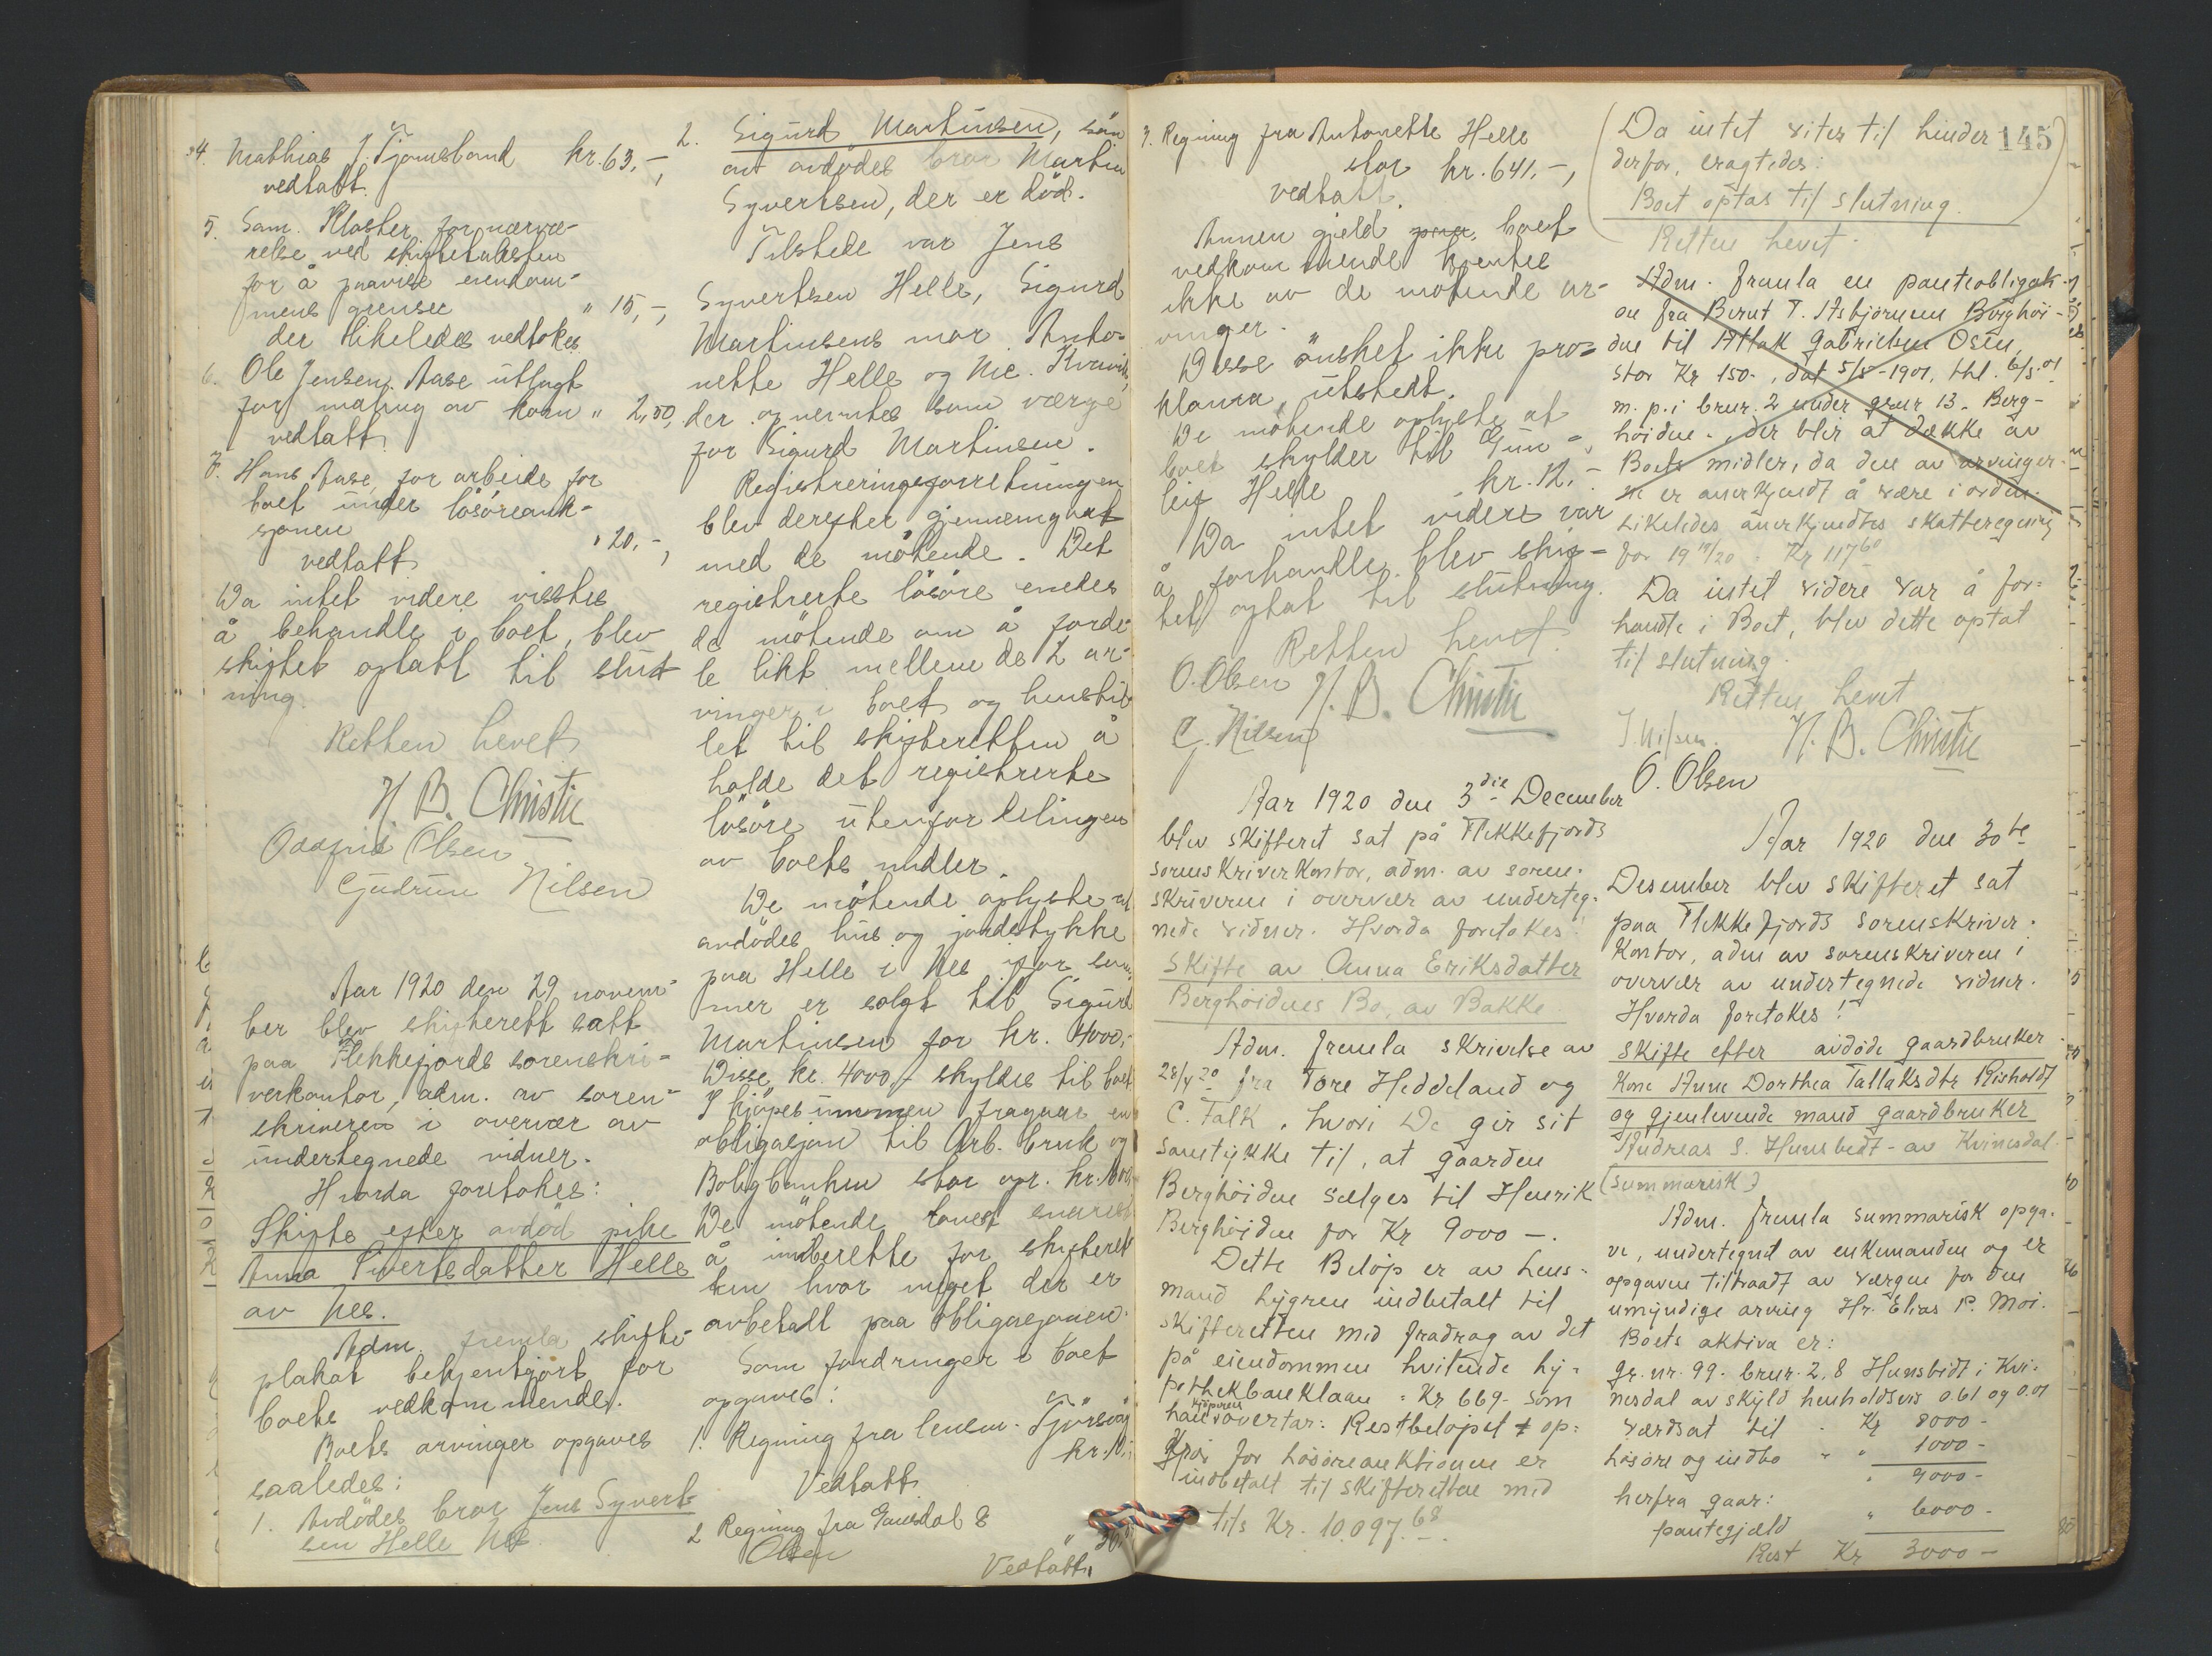 4. Mathias J. Tjomsland kr. 63,-,
vedtatt.
5. Sam. Kloster for nærvæ-
relse ved skiftetaksten
for å paavise eiendom-
mens grenser " 15,-,
der likeledes vedtokes
6. Ole Jensen Aase utlagt
for maling av korn " 2,50,
vedtatt
7. Hans Aase for arbeide for
boet under lösöreauk-
sjonen " 20,-,
vedtatt
Da intet videre visstes
å behandle i boet, blev
skiftet optatt til slut-
ning.
Retten hevet
N. B. Christie
Olsen
Gudrun Nilsen
Aar 1920 den 29 novem-
ber blev skifterett satt
paa Flekkefjords sorenskri-
verkontor, adm. av soren-
skriveren i overvær av
undertegnede vidner.
Hvorda foretokes:
Skifte efter avdöd pike
Anna Sivertsdatter Helle
av Nes.
Adm. fremla skifte-
plakat bekjentgjort for
boets vedkommende.
Boets arvinger opgaves
saaledes:
1. Avdödes bror Jens Syvert-
sen Helle Nes
2. Sigurd Martinsen, sön
av avdödes bror Martin
Syvertsen, der er död.
Tilstede var Jens
Syvertsen Helle, Sigurd
Martinsens mor Anto-
nette Helle og Nic. Kvavik,
der opnevntes som værge
for Sigurd Martinsen.
Registreringsforretningen
blev derefter gjennemgaat
med de mötende. Det
registrerte lösöre enedes
de mötende om å forde-
le likt mellem de 2 ar-
vinger i boet og henstil-
let til skifteretten å
holde det registrerte
lösöre utenfor delingen
av boets midler.
De mötende oplyste at
avdödes hus og jordstykke
paa Helle i Nes ifjor som-
mer er solgt til Sigurd
Martinsen for kr. 4000,-
Disse kr. 4000,- skyldes til boet
I kjöpesummen fragaar en
obligasjon til Arb. bruk og
Boligbanken stor opr. kr.
De mötende lovet snarest
å innberette for skifteret-
ten hvor meget der er
avbetalt paa obligasjonen.
Som fordringer i boet
opgaves:
1. Regning fra lensm. Tjörsvåg
kr.
Vedtatt
2 Regning fra Gausdal &
Olsen "
Vedtatt
3. Regning fra Antonette Helle
stor kr. 641.-,
vedtatt.
Annen gjeld boet
vedkommende kjentes
ikke av de mötende ar-
vinger.
Disse önsket ikke pro-
klama utstedt.
De mötende oplyste at
boet skylder til Gun-
leif Helle kr. 12.-
Da intet videre var
å forhandle blev skif-
tet optat til slutning.
Retten hevet.
O. Olsen N. B. Christie
G. Nilsen
Aar 1920 den 3die December
blev skifteret sat på Flekkefjords
sorenskriverkontor, adm. av soren-
skriveren i overvær av underteg-
nede vidner. Hvorda foretokes:
Skifte av Anna Eriksdatter
Berghöidnes Bo, av Bakke.
Adm. fremla skrivelse av
28/4 20 fra Tore Heddeland og
C. Falk, hvori De gir sit
samtykke til, at gaarden
Berghöiden sælges til Henrik
Berghöiden for Kr 9000 -.
Dette Belöp er av lens-
mand Lygren indbetalt til
skifteretten med fradrag av det
på eiendommen hvilende hy-
pothekbanklaan = Kr 669- som
kjöperen
han overtar: Restbelöpet + op-
gjör for lösöreauktionen er
indbetalt til skifteretten med
tils Kr. 10.097.68
(Da intet vites til hinder 145
derfor, eragtedes:
Boet optas til slutning.
Retten hevet.
Adm. fremla en panteobligati-
on fra Bernt T. Asbjörnsen Berghöi-
den til Attak Gabrielsen Osen,
stor Kr 150-, dat 5/5-1901, thl. 6/5.01
m. p. i brur. 2 under gnr 13. Berg-
höiden. der blir at dække av
Boets midler, da den av arvinger-
ne er anerkjendt å være i orden.
Likeledes anerkjendtes skatteregning
for 19 19/20 - Kr 117 60
Da intet videre var å for-
handle i Boet, blev dette optat
til slutning.
Retten hevet
Nilsen. N. B. Christie
O. Olsen
Aar 1920 den 30te
Desember blev skifteret sat
paa Flekkefjords sorenskriver-
kontor, adm av sorenskriveren i
overvær av undertegnede vidner.
Hvorda foretokes!
Skifte efter avdöde gaardbruker
kone Anne Dorthea Tallaksdtr Risholdt
og gjenlevende mand gaardbruker
Andreas S. Hunsbedt - av Kvinesdal.
(summarisk)
Adm. fremla summarisk opga-
ve, undertegnet av enkemanden og er
opgaven tiltraadt av værgen for den
umyndige arving Hr. Elias P. Moi.
Boets aktiva er:
gr. nr. 99. brnr. 2,8 Hunsbedt i Kvi-
nesdal av skyld henholdsvis 0.61 og 0.01
værdsat til - Kr 8000 -
lösöre og indbo " " 1000 -
" 9000 -
herfra gaar:
pantegjæld " 6000 -
Rest Kr 3000 -